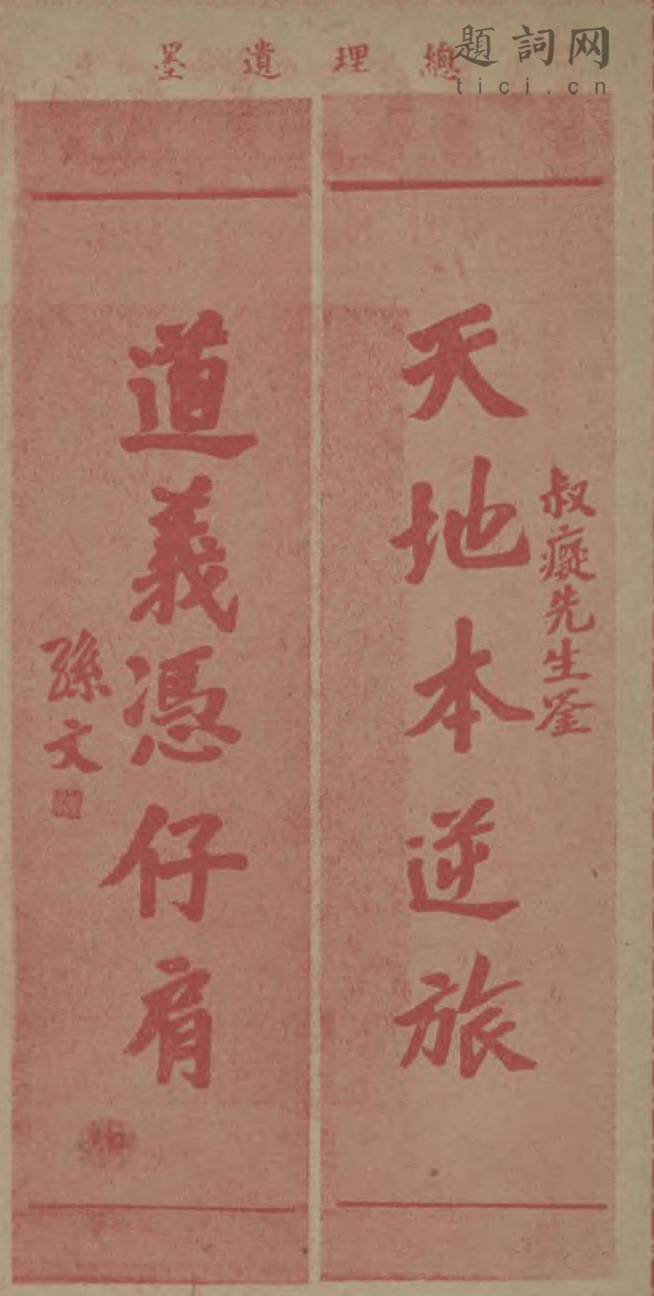 總理遺墨
題詞网
tici.cn
叔癡先生鉴
天地本逆旅
道義憑仔肩
孫文